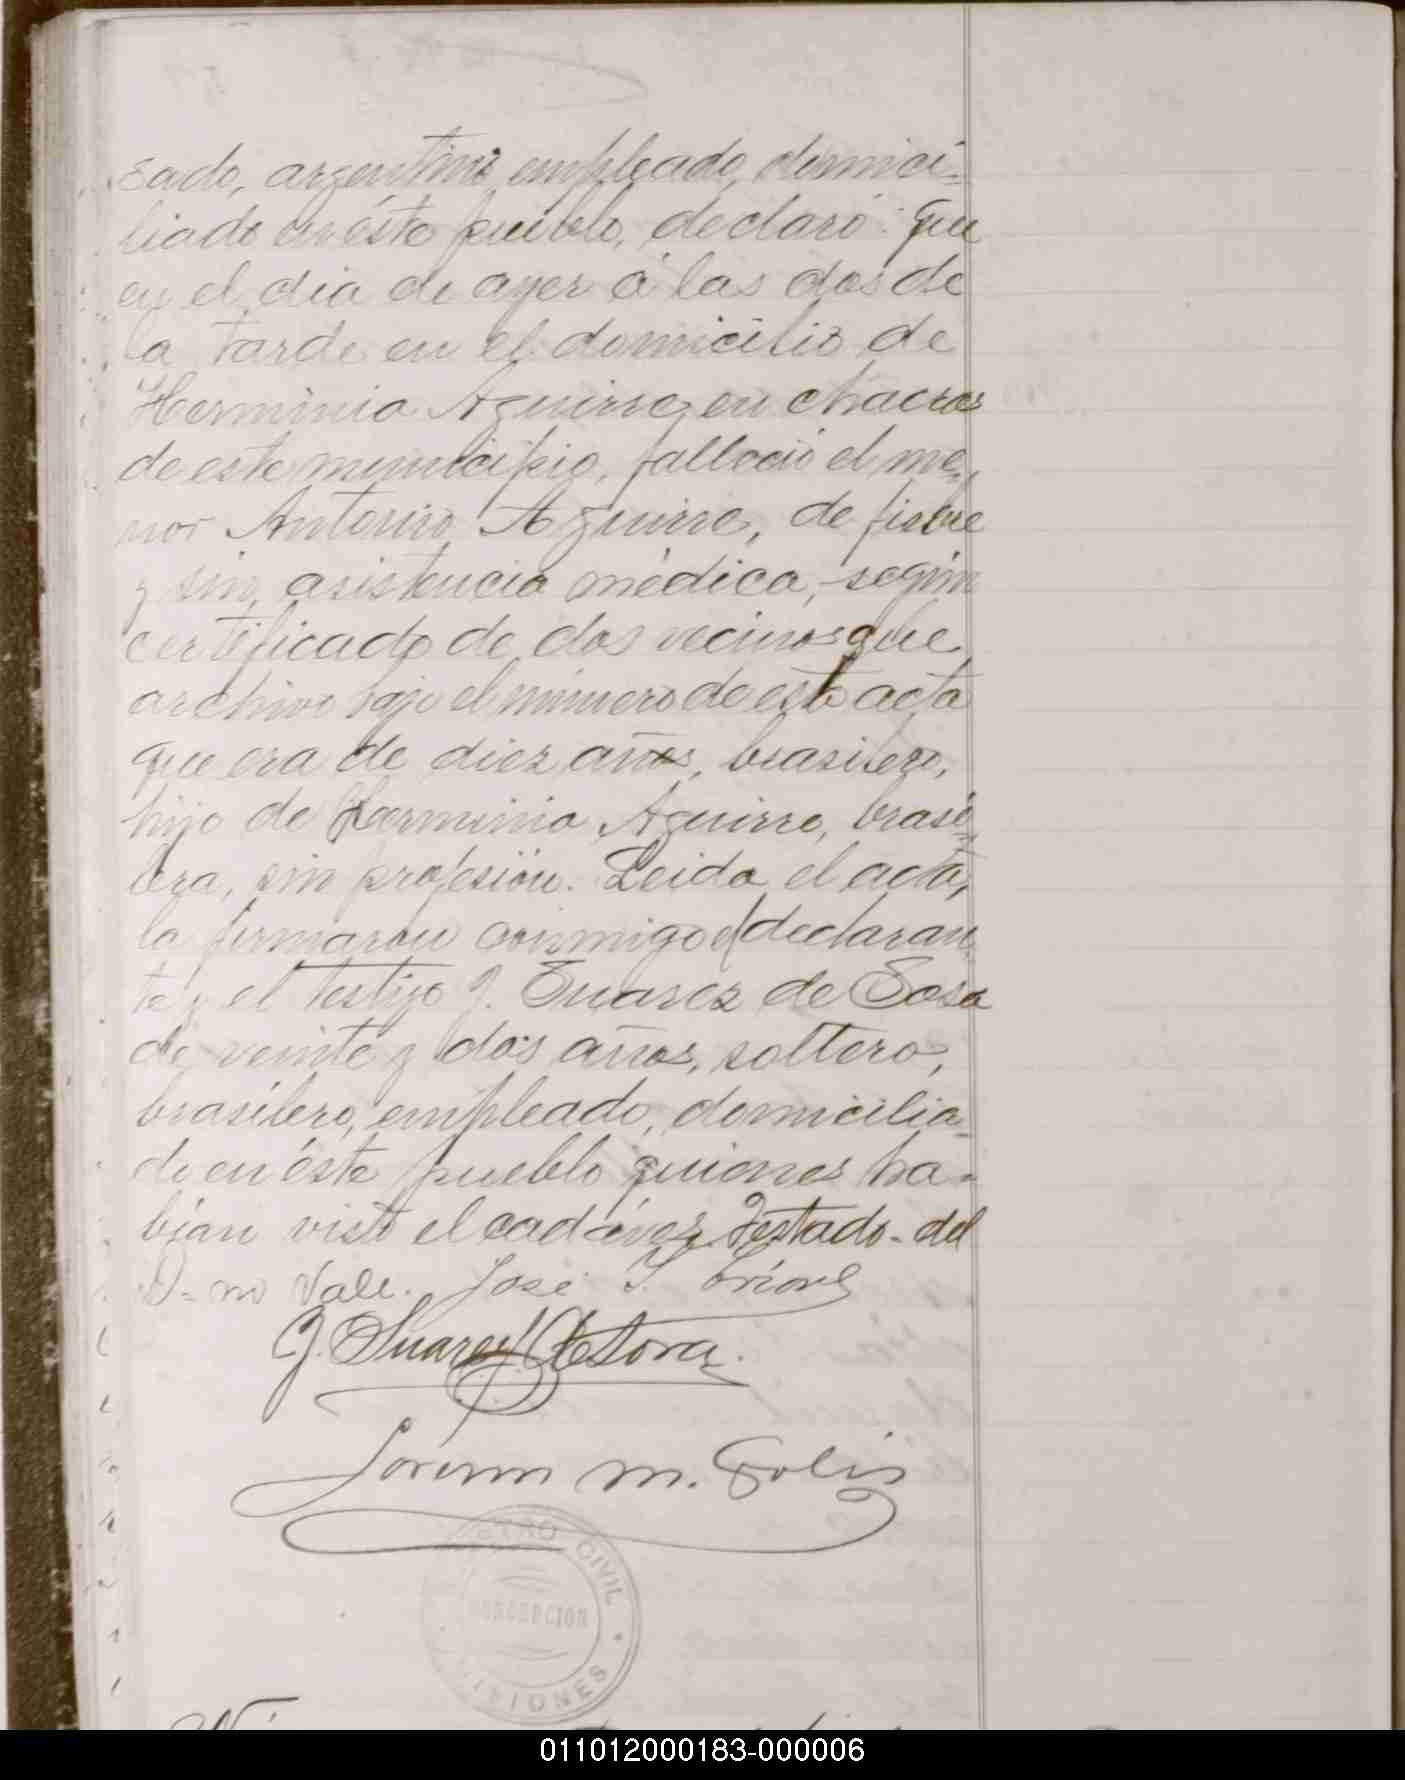 sado, argentino empleado, domici-
liado en éste pueblo, declaró: Que
en el dia de ayer á las dos de
la tarde en el domicilio de
Herminia Aguirre, en chacras
de este municipio, falleció el me-
nor Antonio Aguirre, de fiebre
y sin asistencia médica, según
certificado de dos vecinos que
archivo bajo el número de esta acta
que era de diez años, brasilero,
hijo de Herminia Aguirre, brasi-
lera, sin profesión. Leida el acta,
la firmaron conmigo el declaran-
te y el testigo J. Suarez de Sosa
de veinte y dos años, soltero,
brasilero, empleado, domicilia-
do en éste pueblo quienes ha-
bían visto el cadáver. Testado-del
D-no Vale. José
J. Suarez de Sosa.
M. Solis
REGISTRO CIVIL
CONCEPCION
MISIONES
011012000183-000006